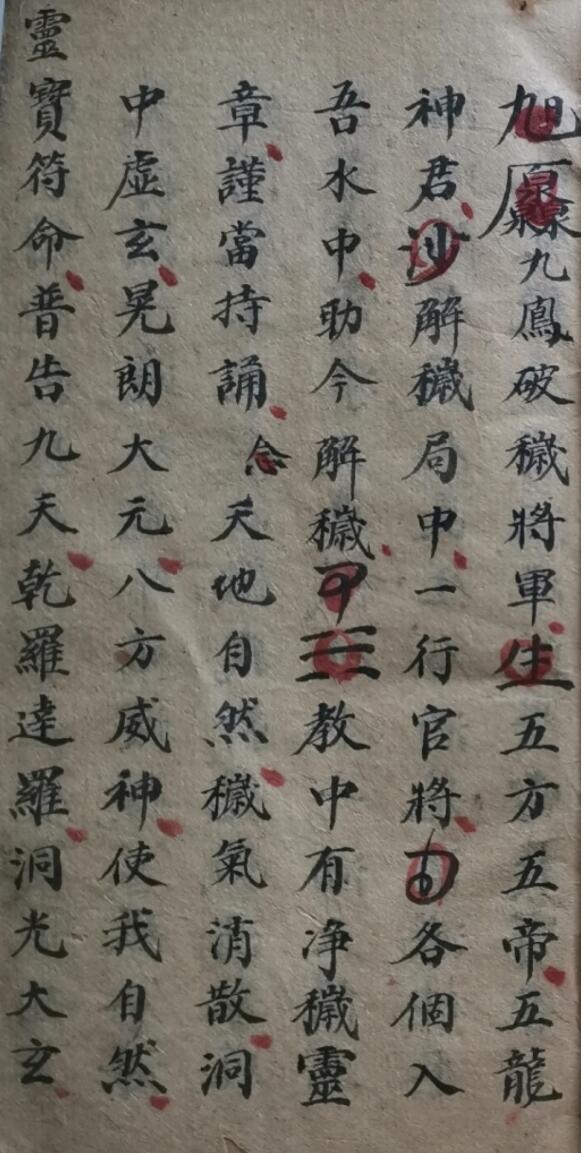 旭九鳳破穢將軍生五方五帝五龍
神君解穢局中一行官將各個入
吾水中助今解穢教中有净穢靈
章謹當持誦念天地自然穢氣消散洞
中虛玄晃朗大元八方威神使我自然
靈寶符命普告九天乾羅達羅洞光大玄